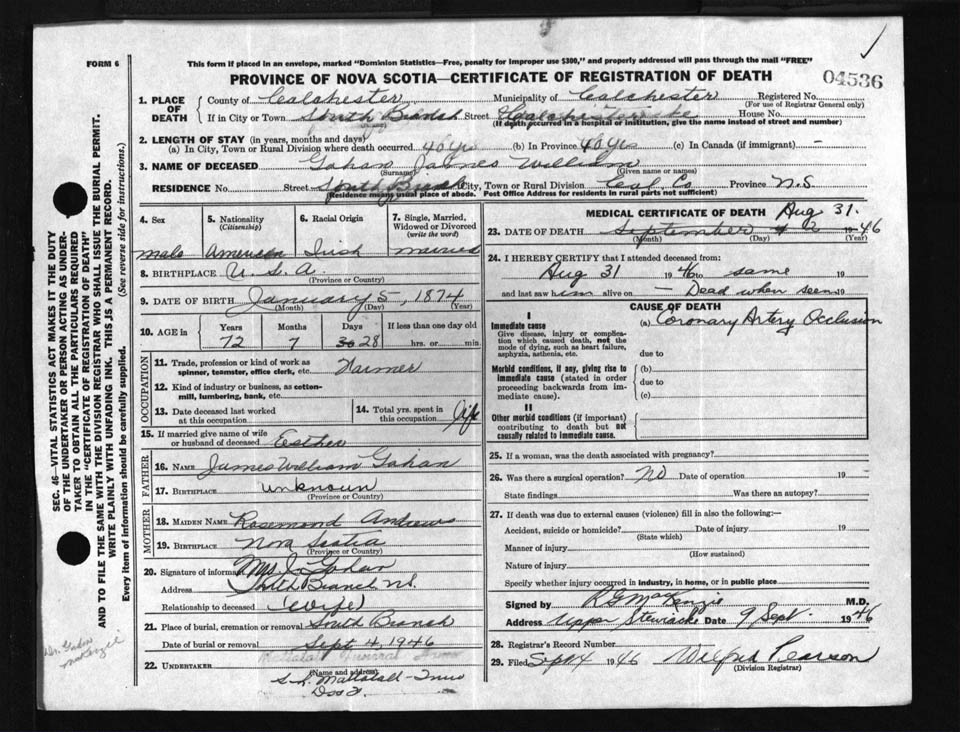 FORM 6
This form if placed in an envelope, marked "Dominion Statistics—Free, penalty for improper use $300," and properly addressed will pass through the mail "FREE"
PROVINCE OF NOVA SCOTIA—CERTIFICATE OF REGISTRATION OF DEATH
04536
1. PLACE OF DEATH
County of Colchester Municipality of Colchester Registered No.
(For use of Registrar General only)
If in City or Town South Branch Street House No.
(If death occurred in a hospital or institution, give the name instead of street and number)
2. LENGTH OF STAY (in years, months and days)
(a) In City, Town or Rural Division where death occurred 40 yrs (b) In Province 40 yrs (c) In Canada (if immigrant) —
3. NAME OF DECEASED Gahan James William
(Surname) (Given name or names)
RESIDENCE No. Street South Branch City, Town or Rural Division Col. Co Province N.S
(Residence means usual place of abode. Post Office Address for residents in rural parts not sufficient)
4. Sex
male
5. Nationality (Citizenship)
American
6. Racial Origin
Irish
7. Single, Married, Widowed or Divorced (write the word)
married
8. BIRTHPLACE U.S.A.
(Province or Country)
9. DATE OF BIRTH January 5, 1874
(Month) (Day) (Year)
10. AGE in Years Months Days If less than one day old
72 7 28 hrs. or min.
OCCUPATION
11. Trade, profession or kind of work as spinner, teamster, office clerk, etc. Farmer
12. Kind of industry or business, as cotton-mill, lumbering, bank, etc.
13. Date deceased last worked at this occupation
14. Total yrs. spent in this occupation life
15. If married give name of wife or husband of deceased Esther
FATHER
16. NAME James William Gahan
17. BIRTHPLACE unknown
(Province or Country)
MOTHER
18. MAIDEN NAME Rosemond Andrews
19. BIRTHPLACE Nova Scotia
(Province or Country)
20. Signature of informant Mrs J. Gahan
Address South Branch N.S.
Relationship to deceased (wife)
21. Place of burial, cremation or removal South Branch
Date of burial or removal Sept 4, 1946
22. UNDERTAKER
(Name and address)
MEDICAL CERTIFICATE OF DEATH Aug 31.
23. DATE OF DEATH September 2 1946
(Month) (Day) (Year)
24. I HEREBY CERTIFY that I attended deceased from:
Aug 31 1946 to same 19
and last saw him alive on — Dead when seen 19
CAUSE OF DEATH
I
Immediate cause
Give disease, injury or complication which caused death, not the mode of dying, such as heart failure, asphyxia, asthenia, etc.
(a) Coronary Artery Occlusion
due to
Morbid conditions, if any, giving rise to immediate cause (stated in order proceeding backwards from immediate cause).
(b)
due to
(c)
II
Other morbid conditions (if important) contributing to death but not causally related to immediate cause.
25. If a woman, was the death associated with pregnancy?
26. Was there a surgical operation? NO Date of operation 19
State findings Was there an autopsy?
27. If death was due to external causes (violence) fill in also the following:—
Accident, suicide or homicide? Date of injury 19
(State which)
Manner of injury
(How sustained)
Nature of injury
Specify whether injury occurred in industry, in home, or in public place
Signed by R G MacKenzie M.D.
Address Upper Stewiacke Date 9 Sept 1946
28. Registrar's Record Number
29. Filed Sept 4 1946 Wilfrid Pearson
(Division Registrar)
SEC. 46—VITAL STATISTICS ACT MAKES IT THE DUTY
OF THE UNDERTAKER OR PERSON ACTING AS UNDER-
TAKER TO OBTAIN ALL THE PARTICULARS REQUIRED
IN THE "CERTIFICATE OF REGISTRATION OF DEATH"
AND TO FILE THE SAME WITH THE DIVISION REGISTRAR WHO SHALL ISSUE THE BURIAL PERMIT.
WRITE PLAINLY WITH UNFADING INK. THIS IS A PERMANENT RECORD.
Every item of information should be carefully supplied. (See reverse side for instructions.)